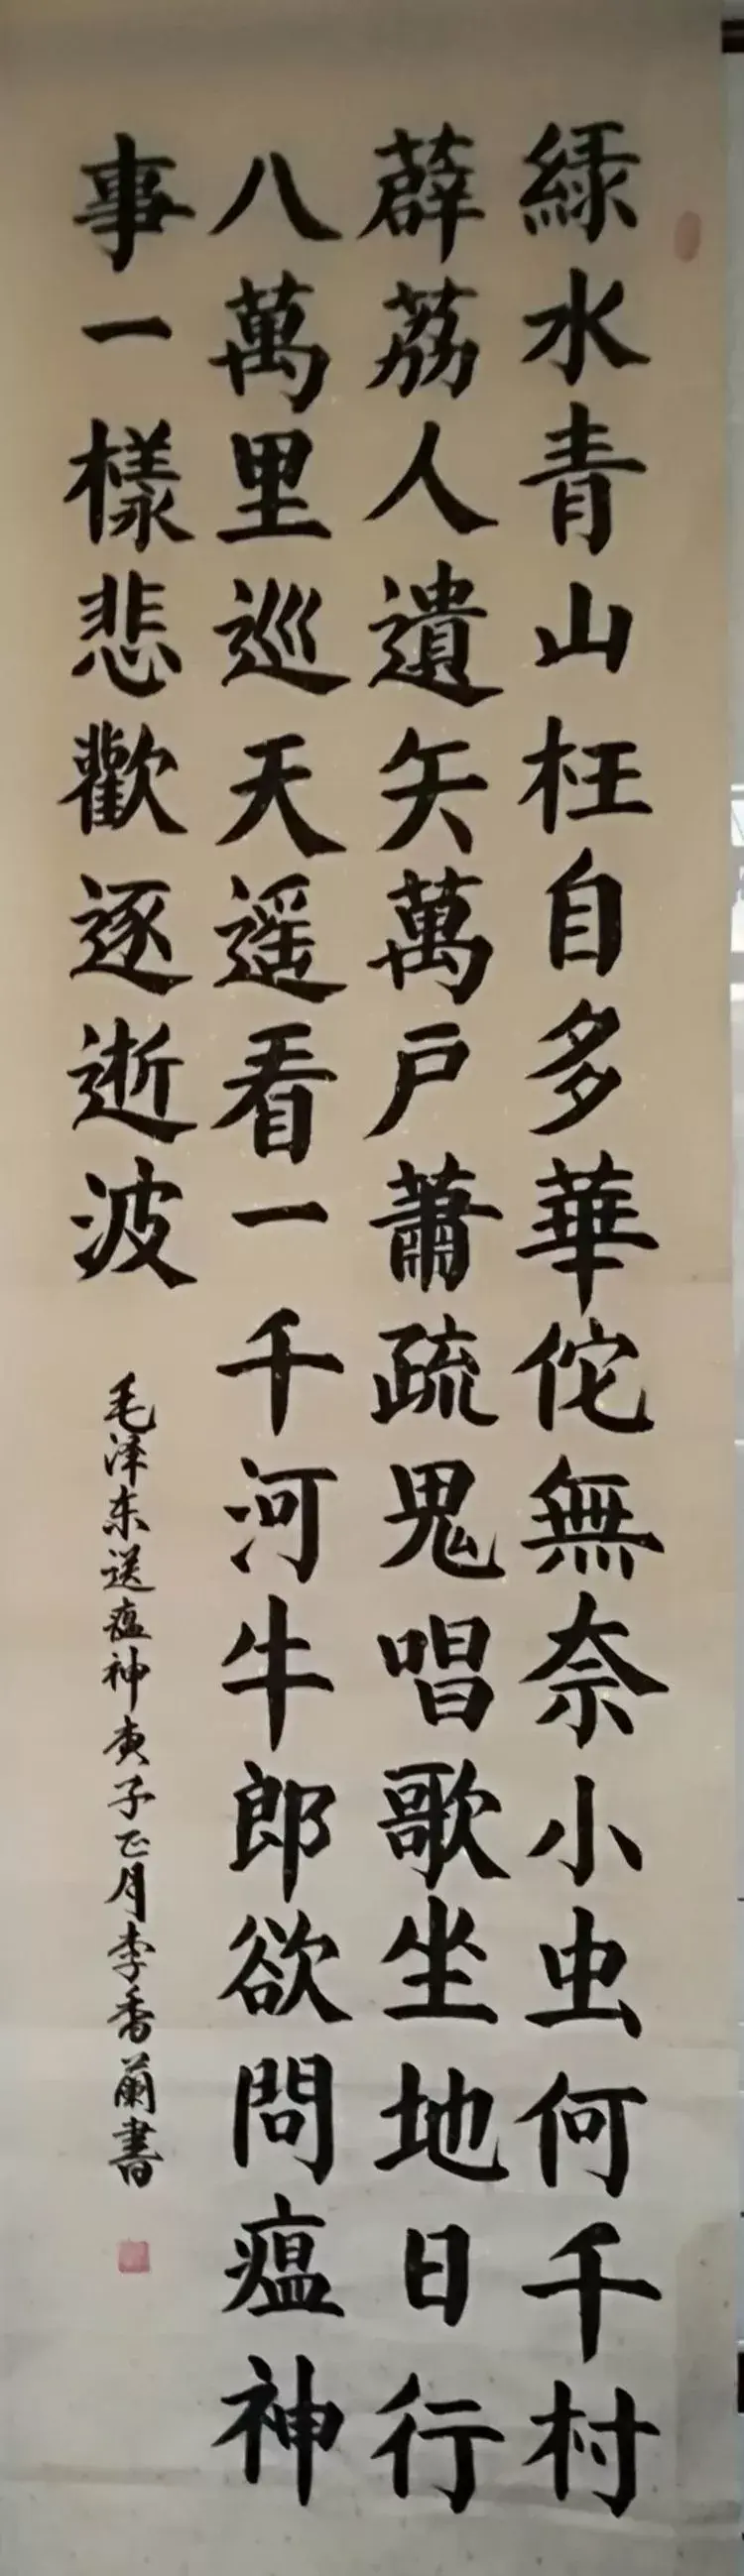 緑水青山枉自多華佗無奈小虫何千村
薜荔人遺矢萬户蕭疏鬼唱歌坐地日行
八萬里巡天遥看一千河牛郎欲問瘟神
事一樣悲歡逐逝波
毛泽东送瘟神庚子正月李香蘭書